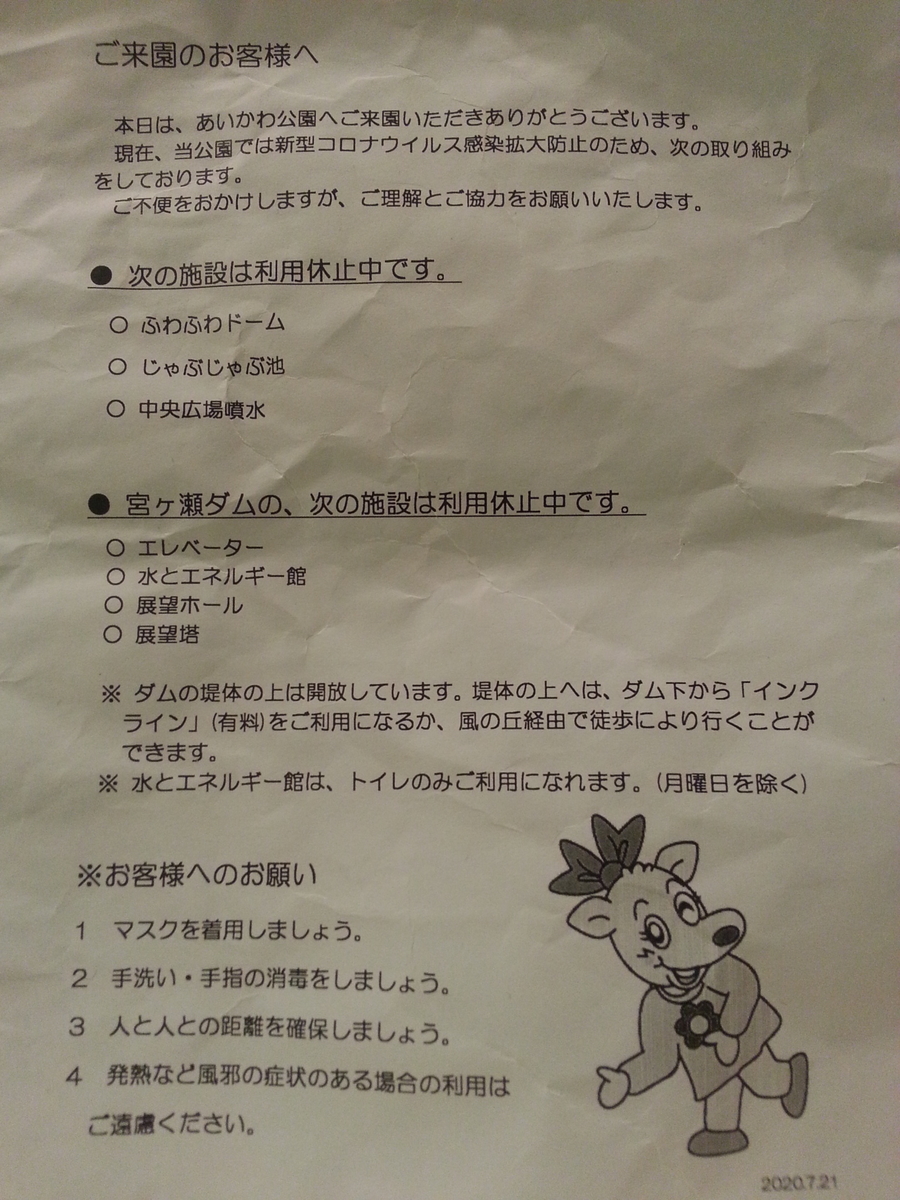 ご来園のお客様へ
本日は、あいかわ公園へご来園いただきありがとうございます。
現在、当公園では新型コロナウイルス感染拡大防止のため、次の取り組み
をしております。
ご不便をおかけしますが、ご理解とご協力をお願いいたします。
● 次の施設は利用休止中です。
○ ふわふわドーム
○ じゃぶじゃぶ池
○ 中央広場噴水
● 宮ヶ瀬ダムの、次の施設は利用休止中です。
○ エレベーター
○ 水とエネルギー館
○ 展望ホール
○ 展望塔
※ ダムの堤体の上は開放しています。堤体の上へは、ダム下から「インク
ライン」(有料)をご利用になるか、風の丘経由で徒歩により行くことが
できます。
※ 水とエネルギー館は、トイレのみご利用になれます。(月曜日を除く)
※お客様へのお願い
1 マスクを着用しましょう。
2 手洗い・手指の消毒をしましょう。
3 人と人との距離を確保しましょう。
4 発熱など風邪の症状のある場合の利用は
ご遠慮ください。
2020.7.21